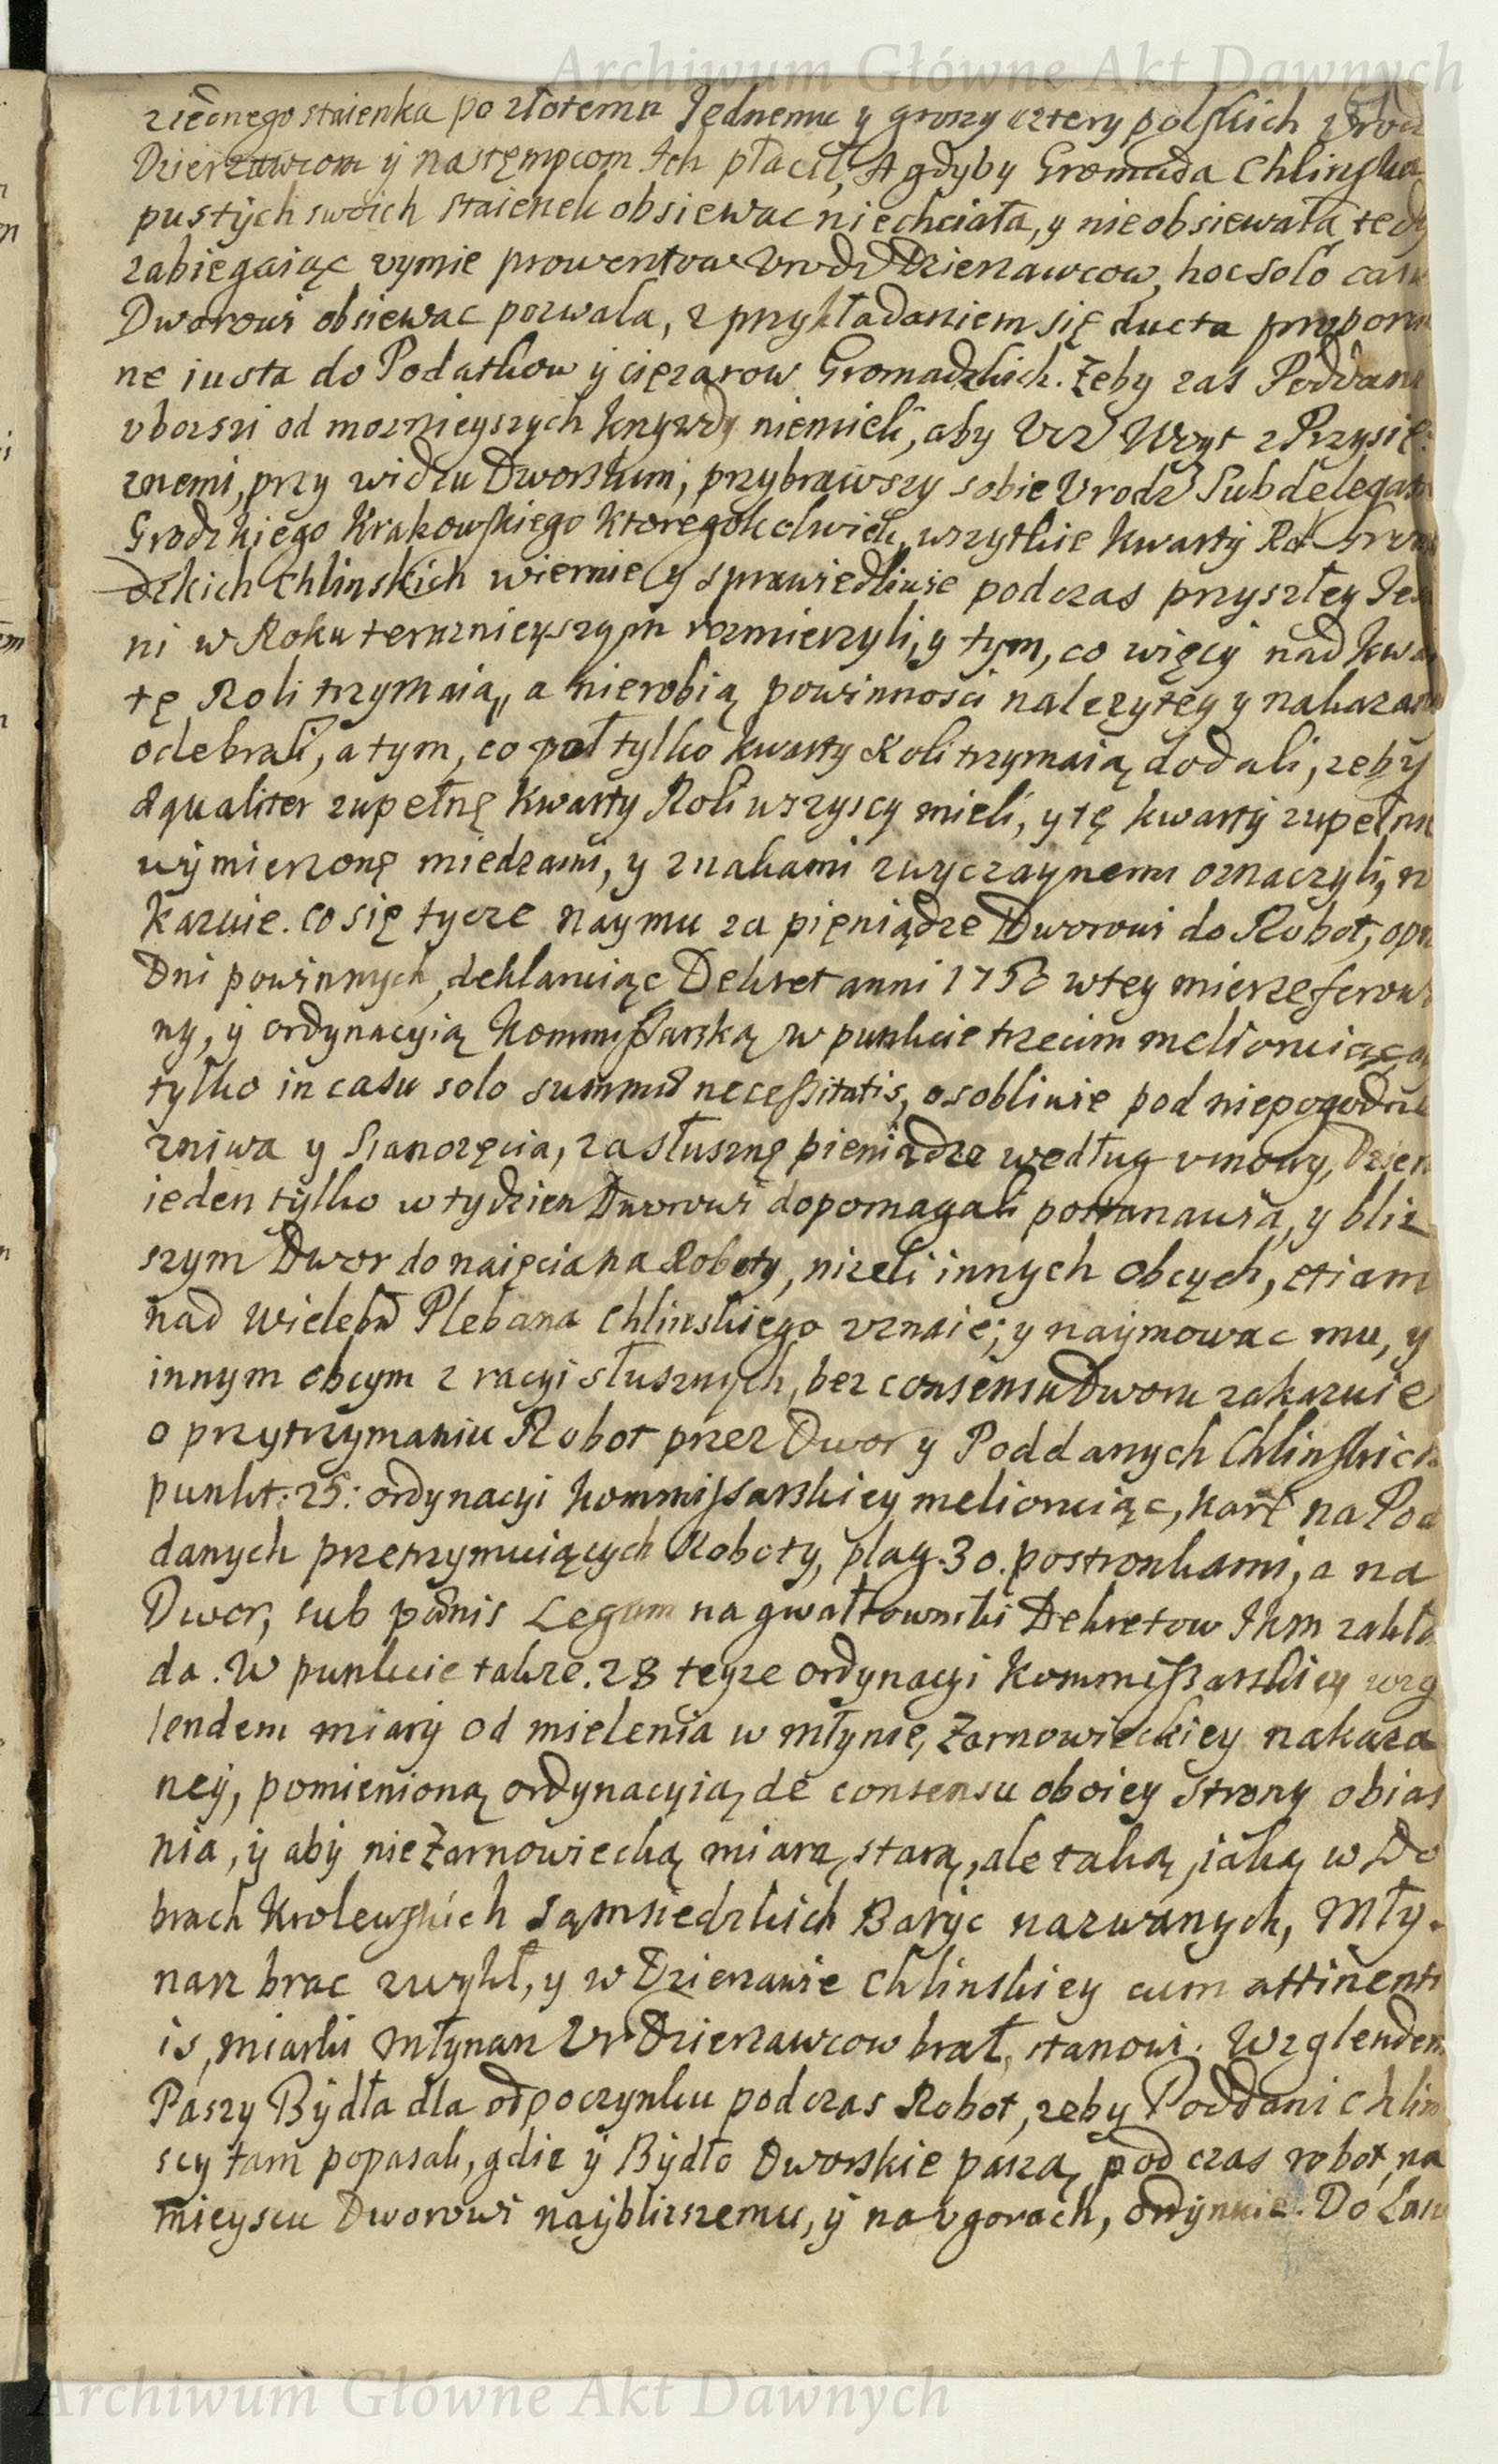 Archiwum Główne Akt Dawnych
rzeconego staienka po złotemu Jednemu y groszy cztery polskich
Dzierzawcom ÿ następcom Ich płacił, A gdyby Gromada Chlinska
pustÿch swoich staienek obsiewac niechciała, y nieobsiewała tedy
zabiegaiąc vymie prowentow Vrodz Dzierzawcow, hoc solo casu
Dworowi obsiewac pozwala, z przykładaniem się ducta proportio
ne iusta do Podatkow ÿ cięzarow Gromadzkich. Zeby zas Poddani
vbozsi od moznieyszych krzywdy niemieli, aby Vrz Woyt z Przysię
znemi, przy widzu Dworskim, przybrawszy sobie Vrodz Subdelegata
Grodzkiego Krakowskiego ktoregokolwiek, wszytkie kwartÿ Rol Groma
dzkich Chlinskich wiernie y sprawiedliwie podczas przyszłey Jesie
ni w Roku teraznieyszym rozmierzyli, y tym, co więcÿ nad kwar
tę Roli trzymaią, a nierobią powinnosci nalezytey y nakazaney
odebrali, a tym, co poł tylko kwarty Roli trzymaią dodali, zeby
æqualiter zupełnę kwarty Roli wszyscy mieli, y tę kwartÿ zupełnie
wÿmierzonę miedzami, y znakami zwyczaynemi oznaczyli, na
kazuie. Co się tycze naymu za pięniądze Dworowi do Robot, oprocz
Dni powinnych, deklaruiąc Dekret anni 1753 wtey mierze ferowa
ny, ÿ ordynacyią Kommissarską w punkcie trzecim melioruiąc, aby
tylko in casu solo summæ necessitatis, osobliwie pod niepogodne
zniwa y Sianozęcia, za słusznę pieniądze według vmowy, Dzien
ieden tylko w tydzien Dworowi dopomagali postanawia, y bliz
szym Dwor do naięcia na Roboty, nizeli innych obcÿch, etiam
nad Wielebn Plebana Chlinskiego vznaie; y naÿmowac mu, y
innym obcym z racyi słusznych, bez consensu Dworu zakazuie
o przytrzymaniu Robot przez Dwor y Poddanych Chlinskich
punkt: 25: ordynacyi Kommissarskiey melioruiąc, karę na Pod
danych przetrzymuiących Roboty, plag. 30. postronkami, a na
Dwor, sub pœnis Legum na gwałtowniki Dekretow JKM zakła
da. W punkcie takze. 28 teyze ordynacyi Kommissarskiey wzg
lendem miarÿ od mielenia w młynie, Zarnowieckiey nakaza
neÿ, pomienioną ordynacyią de consensu oboiey strony obias
nia, ÿ abÿ nie Zarnowiecką miarą, starą, ale taką, iaką w Do
brach Krolewskich Sąmsiedzkich Barÿc nazwanych, Mły-
narz brac zwykł, y w Dzierzawie Chlinskiey cum attinenti
is, miarki Młynarz Vr Dzierzawcow brał, stanowi. Wzglendem
Paszy Bÿdła dla odpoczynku podczas Robot, zeby Poddani Chlin
scy tam popasali, gdie ÿ Bÿdło Dworskie paszą, pod czas robot, na
mieyscu Dworowi nayblizszemu, ÿ na vgorach, ordynuie. Do Lasu
Archiwum Główne Akt Dawnych